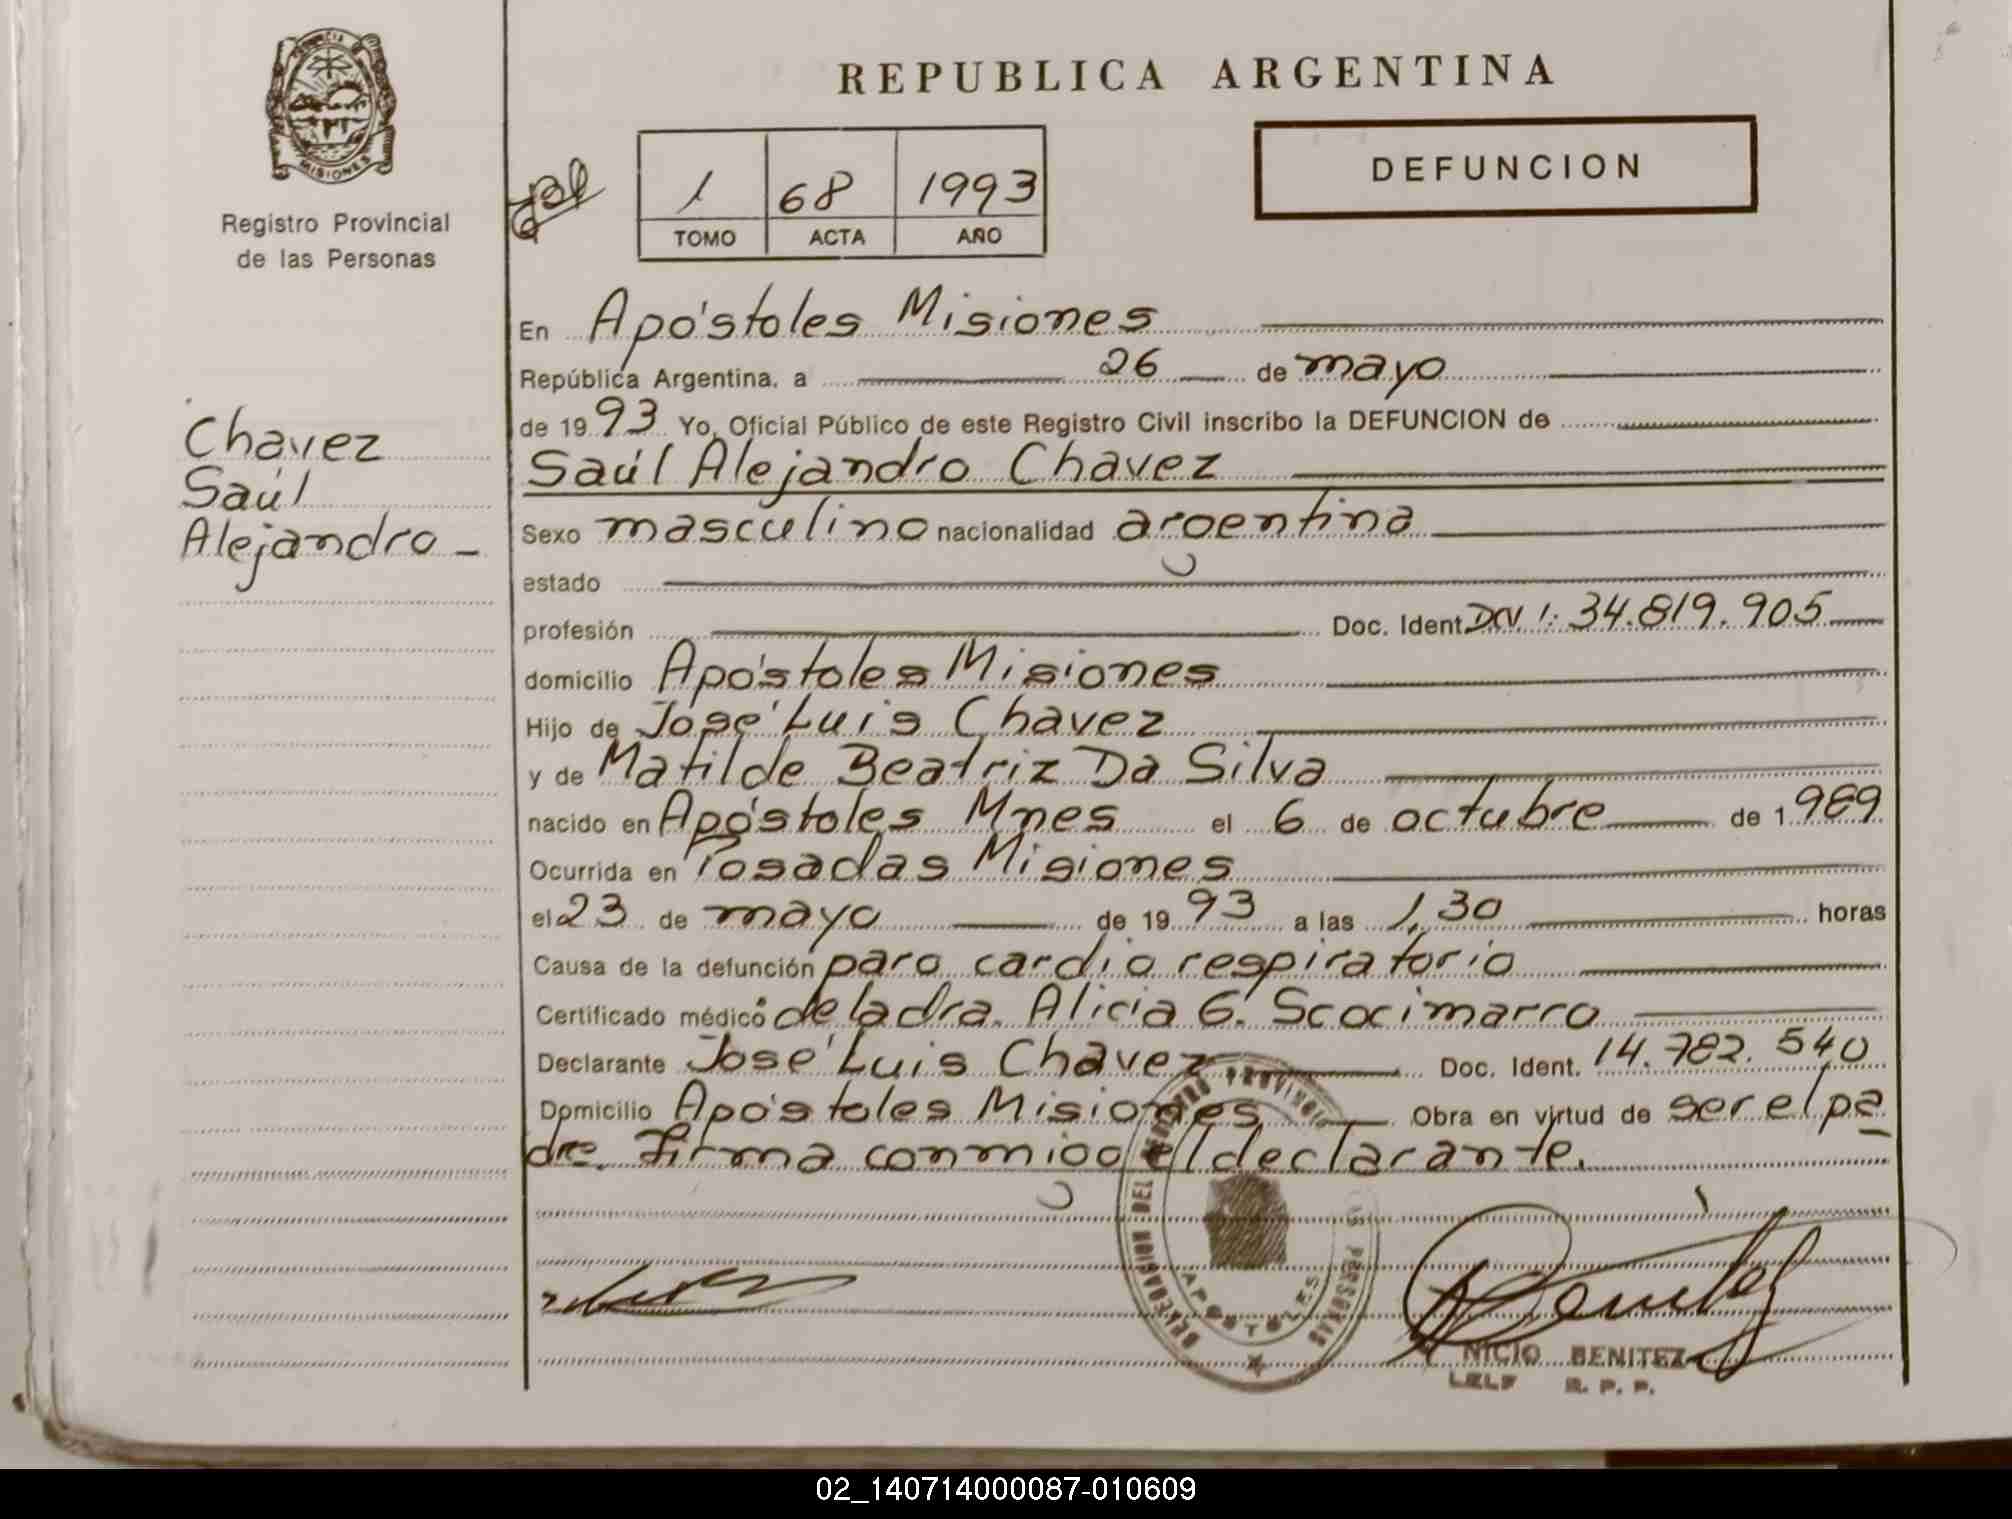 PROVINCIA
MISIONES
Registro Provincial
de las Personas
REPUBLICA ARGENTINA
1 68 1993
TOMO ACTA AÑO
DEFUNCION
Chavez
Saúl
Alejandro -
En Apóstoles Misiones
República Argentina, a 26 de mayo
de 1993 Yo, Oficial Público de este Registro Civil inscribo la DEFUNCION de
Saúl Alejandro Chavez
Sexo masculino nacionalidad argentina
estado
profesión Doc. Ident. DN1: 34.819.905
domicilio Apóstoles Misiones
Hijo de José Luis Chavez
y de Matilde Beatriz Da Silva
nacido en Apóstoles Mnes el 6 de octubre de 1989
Ocurrida en Posadas Misiones
el 23 de mayo de 1993 a las 1,30 horas
Causa de la defunción paro cardio respiratorio
Certificado médico de la dra. Alicia G. Scocimarro
Declarante José Luis Chavez Doc. Ident. 14.782.540
Domicilio Apóstoles Misiones Obra en virtud de ser el pa
dre. Firma conmigo el declarante.
DELEGACION DEL REGISTRO PROVINCIAL PERSONAS
APOSTOLES
BENITEZ
R. P. P.
02_140714000087-010609